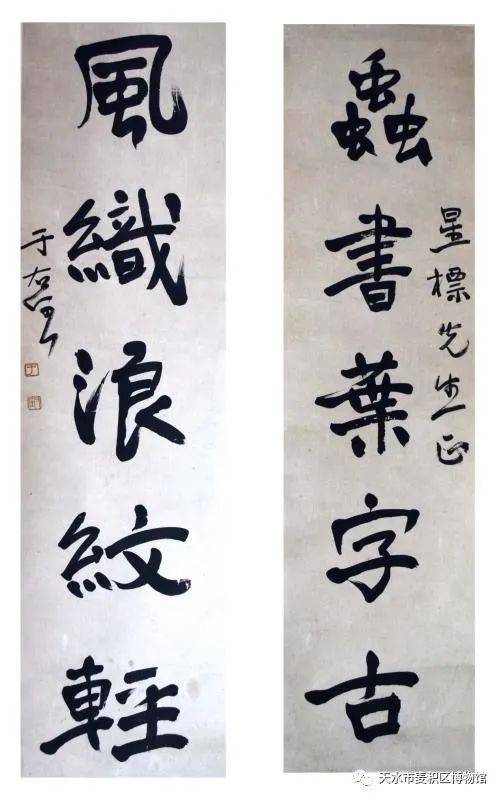 蟲書葉字古
星標先生正
風織浪紋輕
于右任
天水市麦积区博物馆